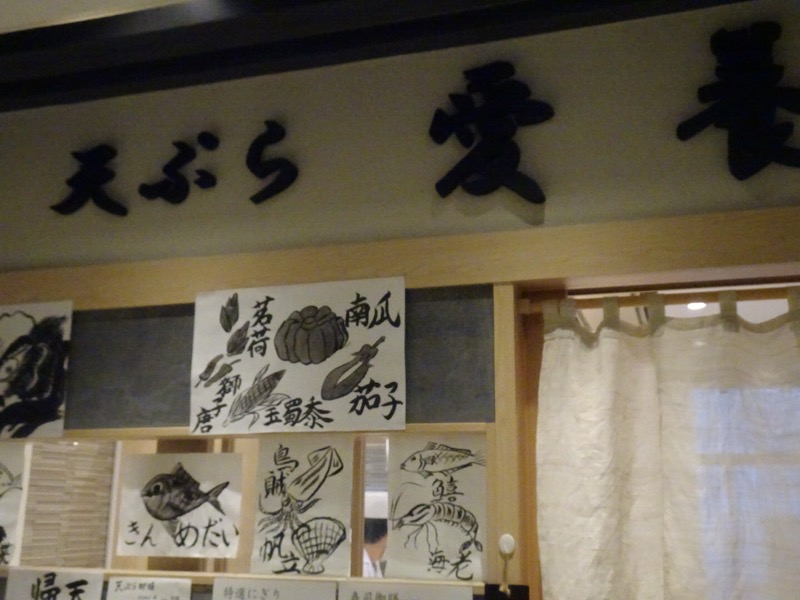 天ぷら 愛養
茗荷
南瓜
獅子唐
玉蜀黍
茄子
きんめだい
烏賊
帆立
鱚
海老
帰天
特選にぎり